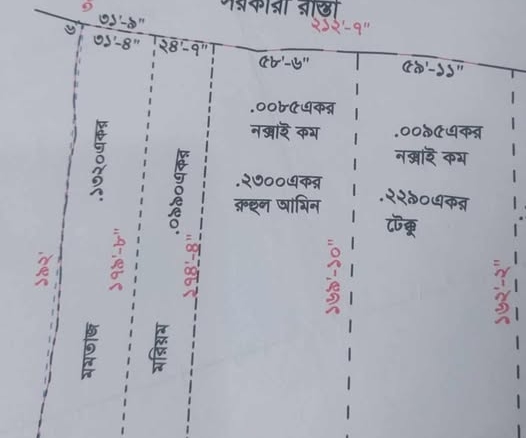 সরকারী রাস্তা
২১২'-৭"
৩১'-৯"
৬
৩১'-৪"
২৪'-৭"
৫৮'-৬"
৫৯'-১১"
.১৩২০একর
.০৯৯০একর
.০০৮৫একর
নক্সাই কম
.২৩০০একর
রুহুল আমিন
.০০৯৫একর
নক্সাই কম
.২২৯০একর
টেকু
১৯২'
১৭৯'-৮"
১৭৪'-৪"
১৬৯'-১০"
১৬২'-২"
মমতাজ
মরিয়ম